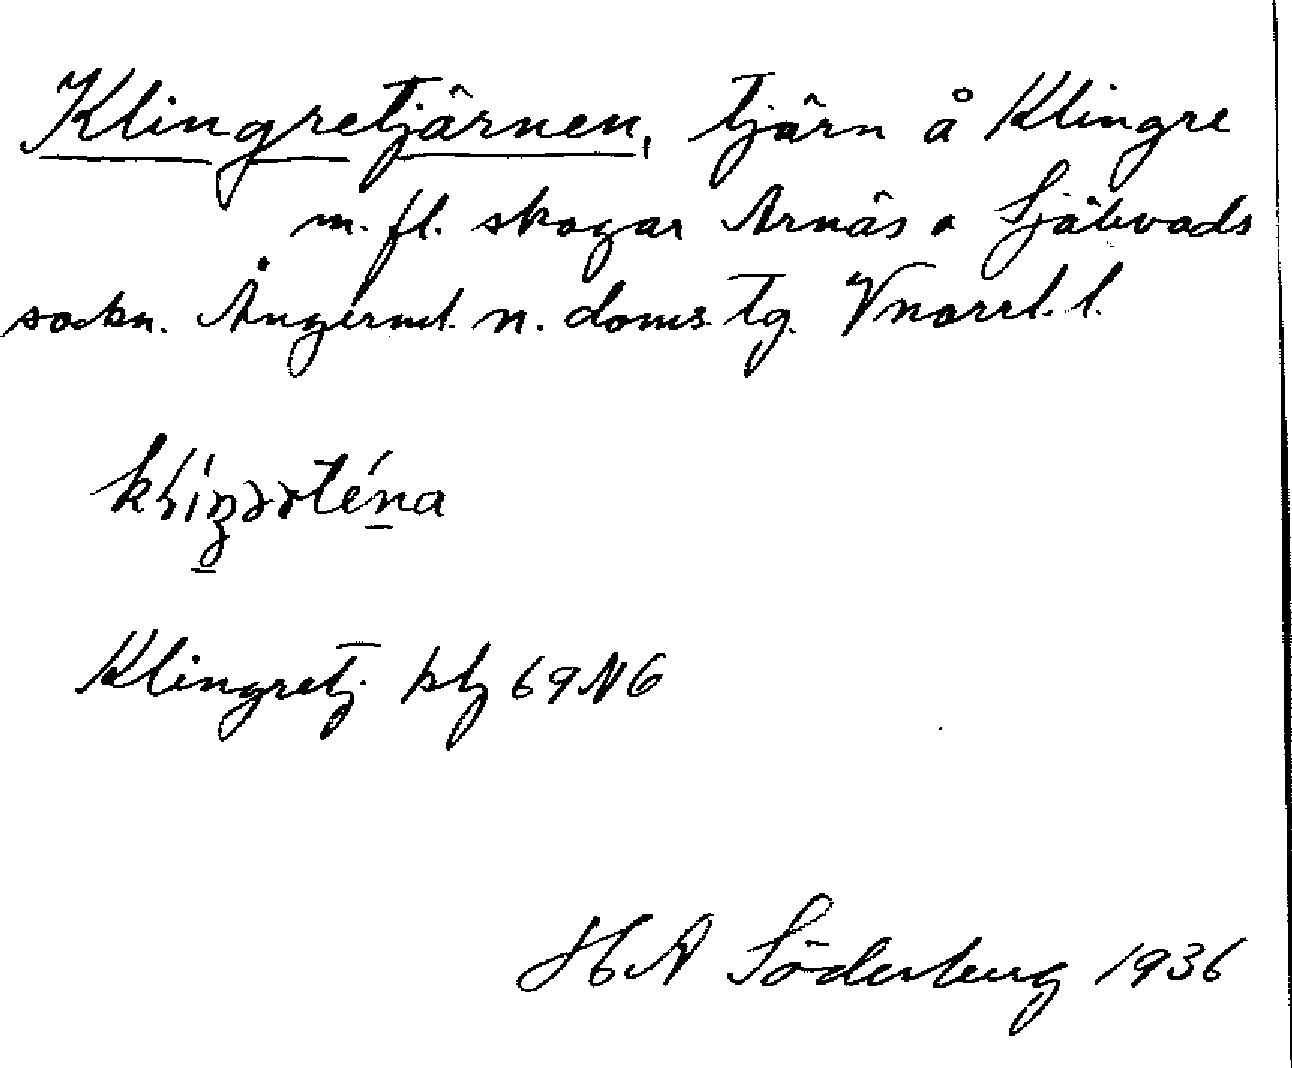 Klingretjärnen, tjärn å Klingre
m. fl. skogar Arnäs o Själevads
sockn. Ångerml. n. doms. tg. Vnorrl. l.
Klingretj. ktg 69 N6
H A Söderberg 1936